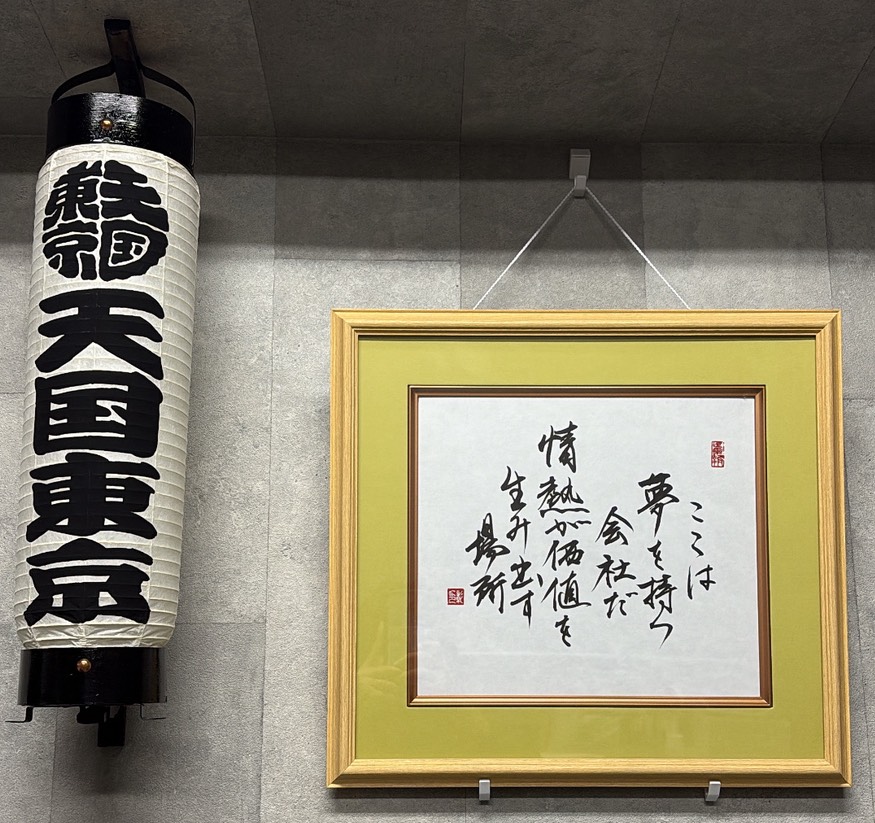 天国
東京
天国東京
ここは
夢を持つ
会社だ
情熱が価値を
生み出す
場所